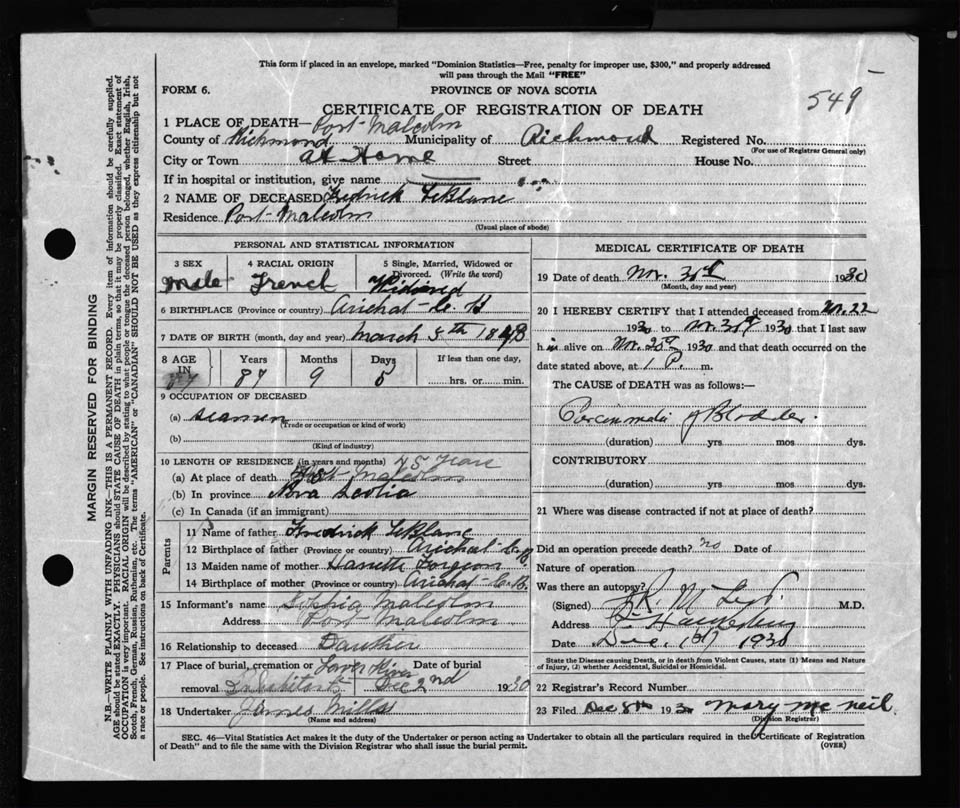 This form if placed in an envelope, marked "Dominion Statistics—Free, penalty for improper use, $300," and properly addressed
will pass through the Mail "FREE"
FORM 6.
PROVINCE OF NOVA SCOTIA
549
CERTIFICATE OF REGISTRATION OF DEATH
1 PLACE OF DEATH— Port Malcolm
County of Richmond Municipality of Richmond Registered No.
(For use of Registrar General only)
City or Town at Home Street House No.
If in hospital or institution, give name
2 NAME OF DECEASED Fredrick LeBlanc
Residence Port Malcolm
(Usual place of abode)
PERSONAL AND STATISTICAL INFORMATION
3 SEX 4 RACIAL ORIGIN 5 Single, Married, Widowed or
Divorced. (Write the word)
male French Widowed
6 BIRTHPLACE (Province or country) Arichat C. B
7 DATE OF BIRTH (month, day and year) March 5th 1843
8 AGE Years Months Days If less than one day,
IN 87 87 9 5 hrs. or min.
9 OCCUPATION OF DECEASED
(a) seamen
(Trade or occupation or kind of work)
(b)
(Kind of industry)
10 LENGTH OF RESIDENCE (in years and months) 75 Years
(a) At place of death Port Malcolm
(b) In province Nova Scotia
(c) In Canada (if an immigrant)
Parents
11 Name of father Fredrick LeBlanc
12 Birthplace of father (Province or country) Arichat C.B.
13 Maiden name of mother
14 Birthplace of mother (Province or country) Arichat C.B.
15 Informant's name Sophia Malcolm
Address Port Malcolm
16 Relationship to deceased Dauther
17 Place of burial, cremation or River Date of burial
removal Dec 2nd 1930
18 Undertaker James Mills
(Name and address)
MEDICAL CERTIFICATE OF DEATH
19 Date of death Nov. 1930
(Month, day and year)
20 I HEREBY CERTIFY that I attended deceased from Nov. 22
1930 to 1930 that I last saw
h im alive on Nov. 1930 and that death occurred on the
date stated above, at 1 P. m.
The CAUSE OF DEATH was as follows:—
Carcinmatia of Bladder.
(duration) yrs. mos dys.
CONTRIBUTORY
(duration) yrs. mos. dys.
21 Where was disease contracted if not at place of death?
Did an operation precede death? no Date of
Nature of operation
Was there an autopsy?
(Signed) M.D.
Address
Date Dec. 1930
State the Disease causing Death, or in death from Violent Causes, state (1) Means and Nature
of Injury, (2) whether Accidental, Suicidal or Homicidal.
22 Registrar's Record Number
23 Filed Dec 8th 1930 Mary McNeil.
(Division Registrar)
SEC. 46—Vital Statistics Act makes it the duty of the Undertaker or person acting as Undertaker to obtain all the particulars required in the Certificate of Registration
of Death" and to file the same with the Division Registrar who shall issue the burial permit.
(OVER)
MARGIN RESERVED FOR BINDING
N.B.—WRITE PLAINLY WITH UNFADING INK—THIS IS A PERMANENT RECORD. Every item of information should be carefully supplied.
AGE should be stated EXACTLY. PHYSICIANS should STATE CAUSE OF DEATH in plain terms, so that it may be properly classified. Exact statement of
OCCUPATION is very important. RACIAL ORIGIN will be described by stating to what people or tongue the deceased person belonged, whether English, Irish,
Scotch, French, German, Russian, Ruthenian, etc. The terms "AMERICAN" or "CANADIAN SHOULD NOT BE USED as they express citizenship but not
a race or people. See instructions on back of Certificate.